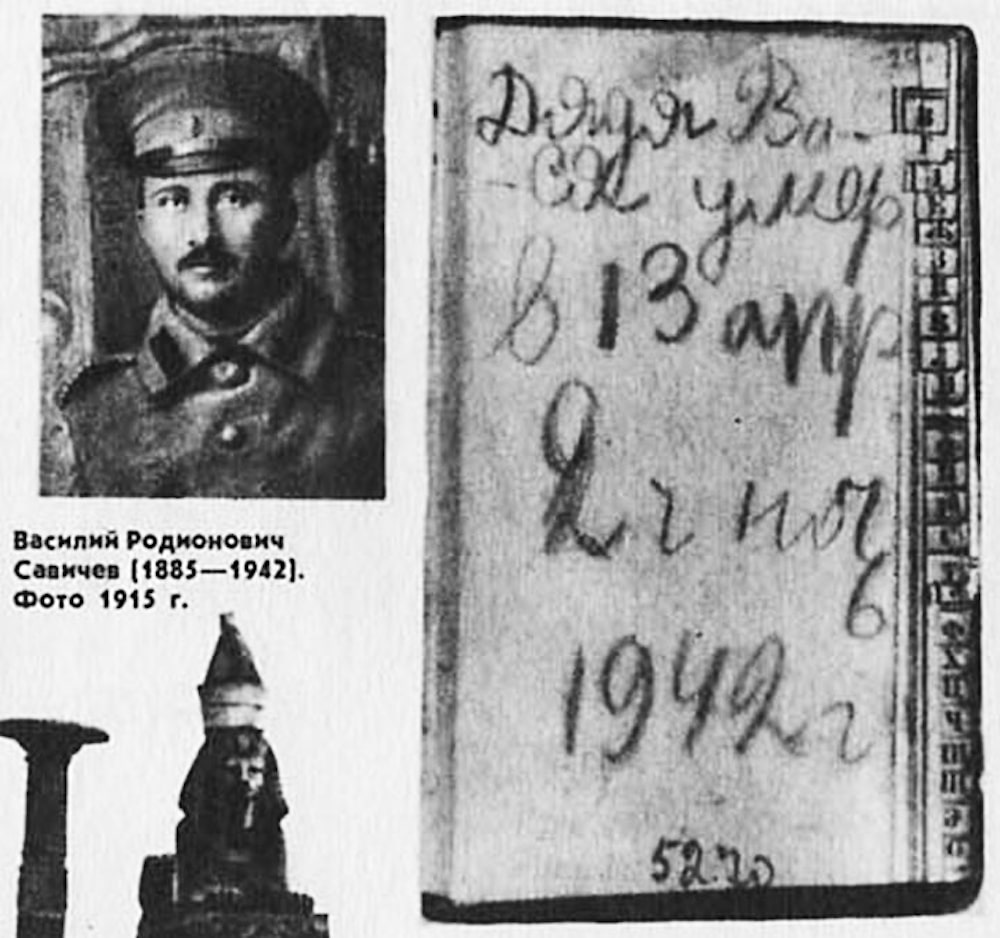 Василий Родионович
Савичев (1885—1942).
Фото 1915 г.
Дядя Ва-
-ся умер
в 13 апр
2 ч ноч
ь
1942 г